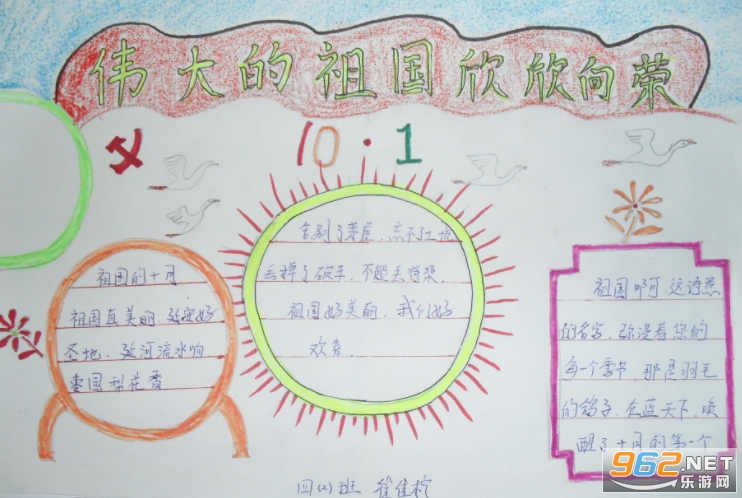 伟大的祖国欣欣向荣
10·1
祖国的十月
祖国真美丽.延安好
圣地.延河流水响
枣园梨花香
告别了茅屋.忘不了土坑
丢掉了破车.不能丢
祖国好美丽.我们好
欢喜.
祖国啊可.这诗意
的名字.弥漫着您的
每一个季节.那是羽毛
的鸽子.在蓝天下.唤
醒了十月的第一个
四(2)班 佳
962.NET
乐游网